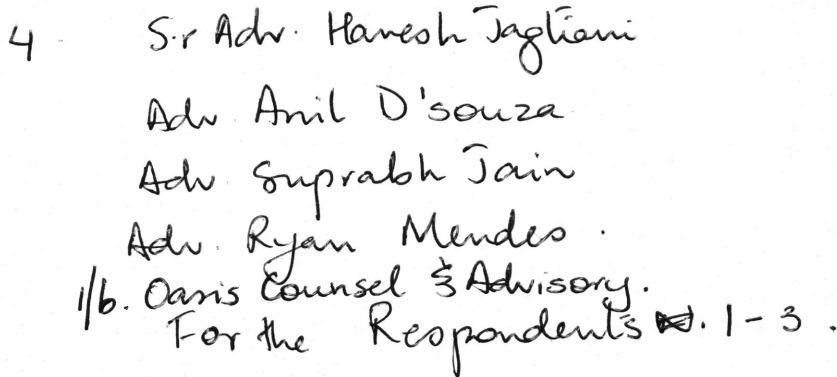 4 Sr Adv. Haresh Jagtiani
Adv Anil D'souza
Adv Suprabh Jain
Adv. Ryan Mendes.
i/b. Oasis Counsel & Advisory.
For the Respondents . 1-3.